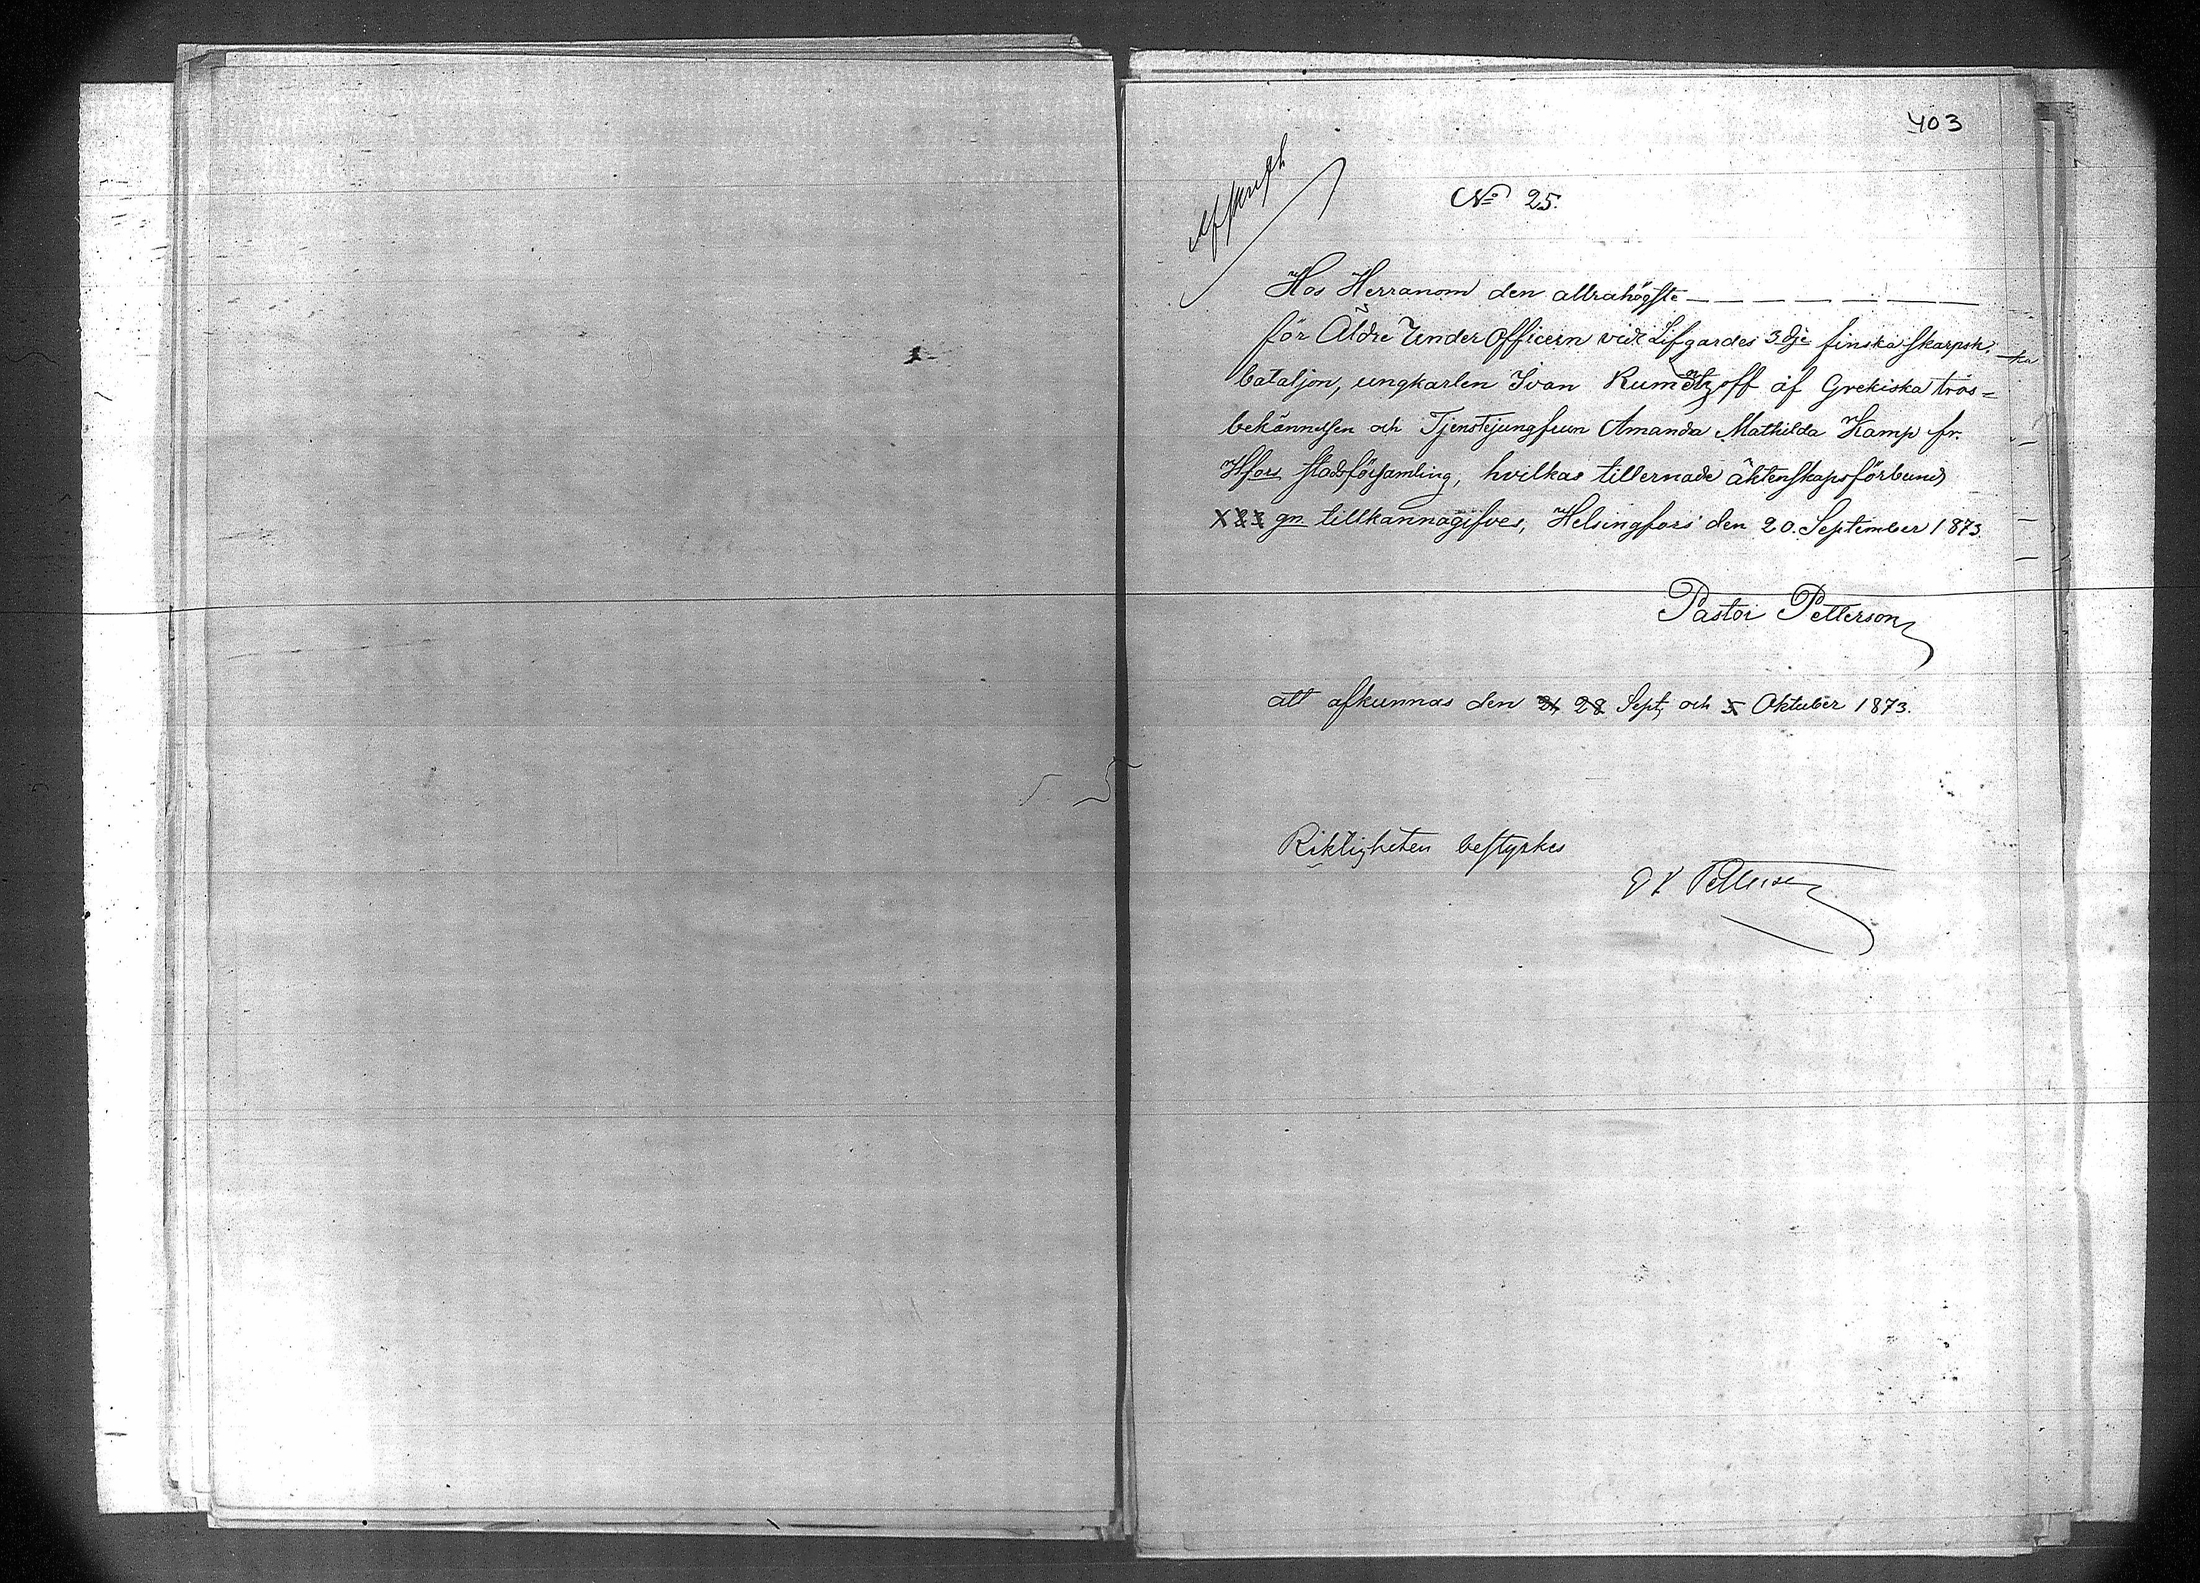 403
Afskrift
No 25.
Hos Herranom den allrahögste — — — — — — —
för Äldre Under Officern vid Lifgardes 3dje finska skarpsk.
bataljon, ungkarlen Ivan Rumätzoff af Grekiska tros=
bekännelsen och Tjenstejungfrun Amanda Mathilda Kamp fr.
Hfors stadsförsamling, hvilkas tillernade äktenskapsförbund
1 2 3 gn tillkännagifves, Helsingfors den 20. September 1873.
Pastor Petterson
att afkunnas den 21, 28 Sept, och 5 Oktober 1873.
Riktigheten bestyrkes
Petterson